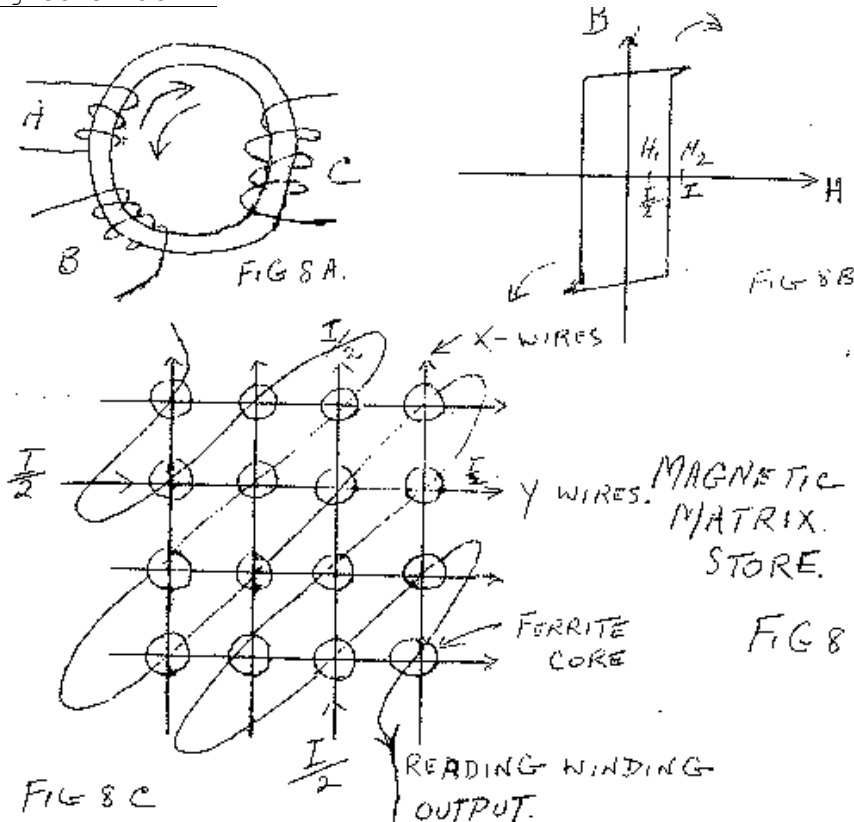 A
B
C
FIG 8A.
B
H
H₁ H₂
I/2 I
FIG 8B
I/2
X-WIRES
I/2
I/2
Y WIRES.
MAGNETIC
MATRIX.
STORE.
FERRITE
CORE
FIG 8
I/2
READING WINDING
OUTPUT.
FIG 8C